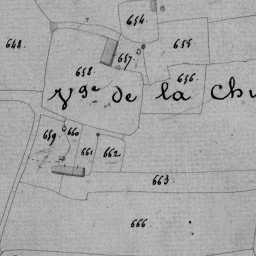 654
648.
655
657
658
656
Vge de la Chu
659
660
661
662
663
666